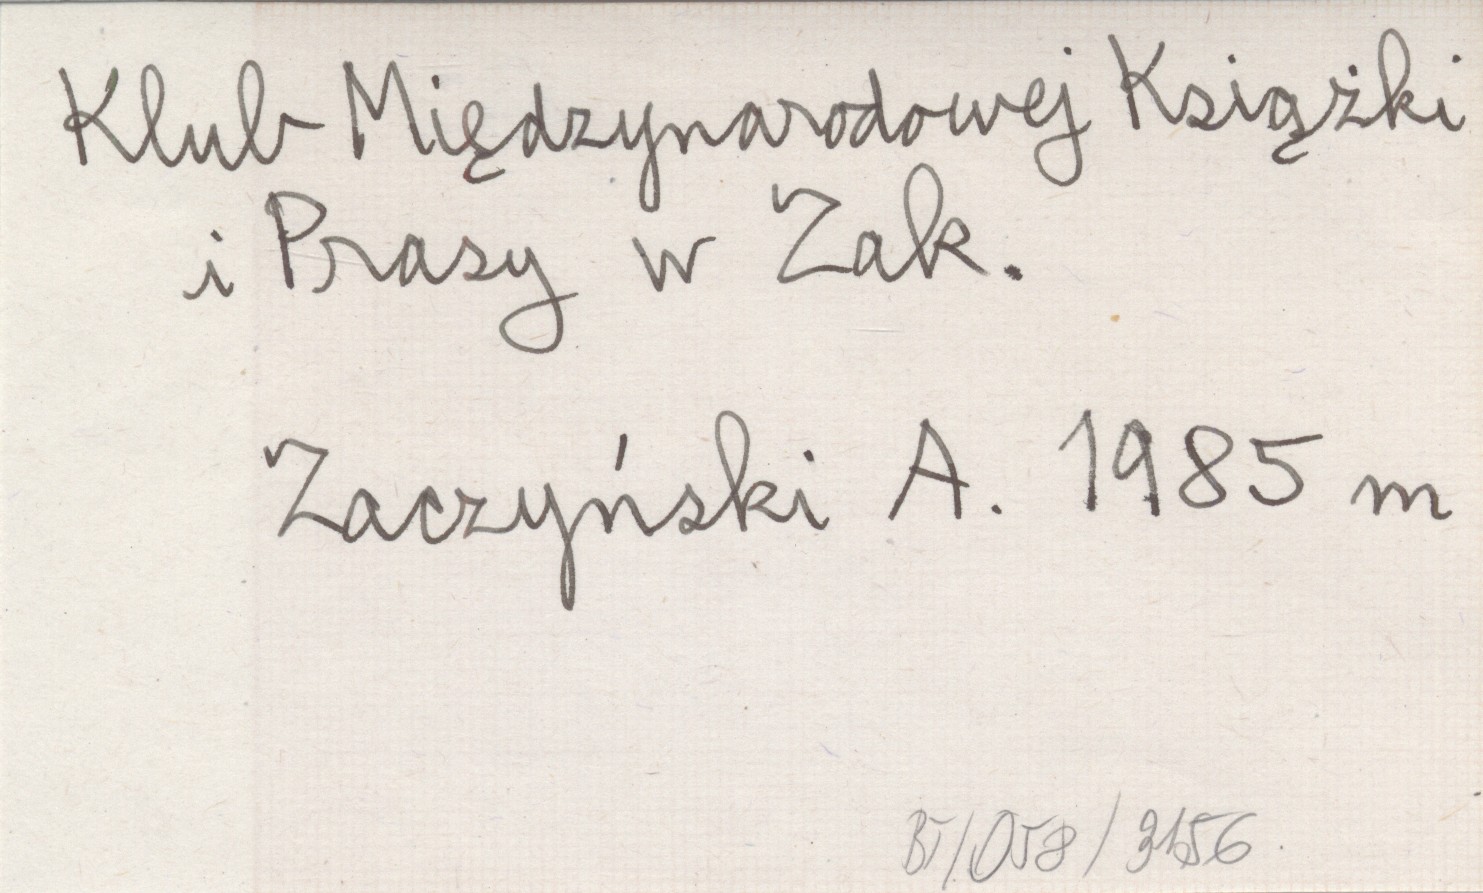 Klub Międzynarodowej Książki
i Prasy w Zak.
Zaczyński A. 1985 m
BT/058/3156